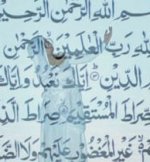 سم الله الرحمن الرحيم
لله رب العلمين الرحمن
الدين إياك نعبد وإياك
صرط المستقيم صرط الذ
غير المغضوب عليهم ولا الض